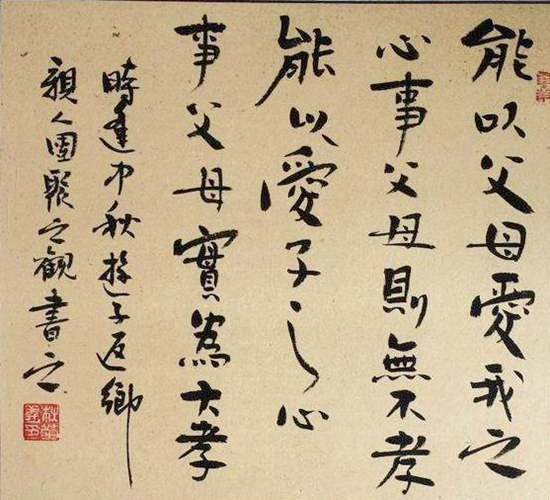 能以父母愛我之
心事父母則無不孝
能以愛子之心
事父母實為大孝
時逢中秋遊子返鄉
親人團聚之觀書之